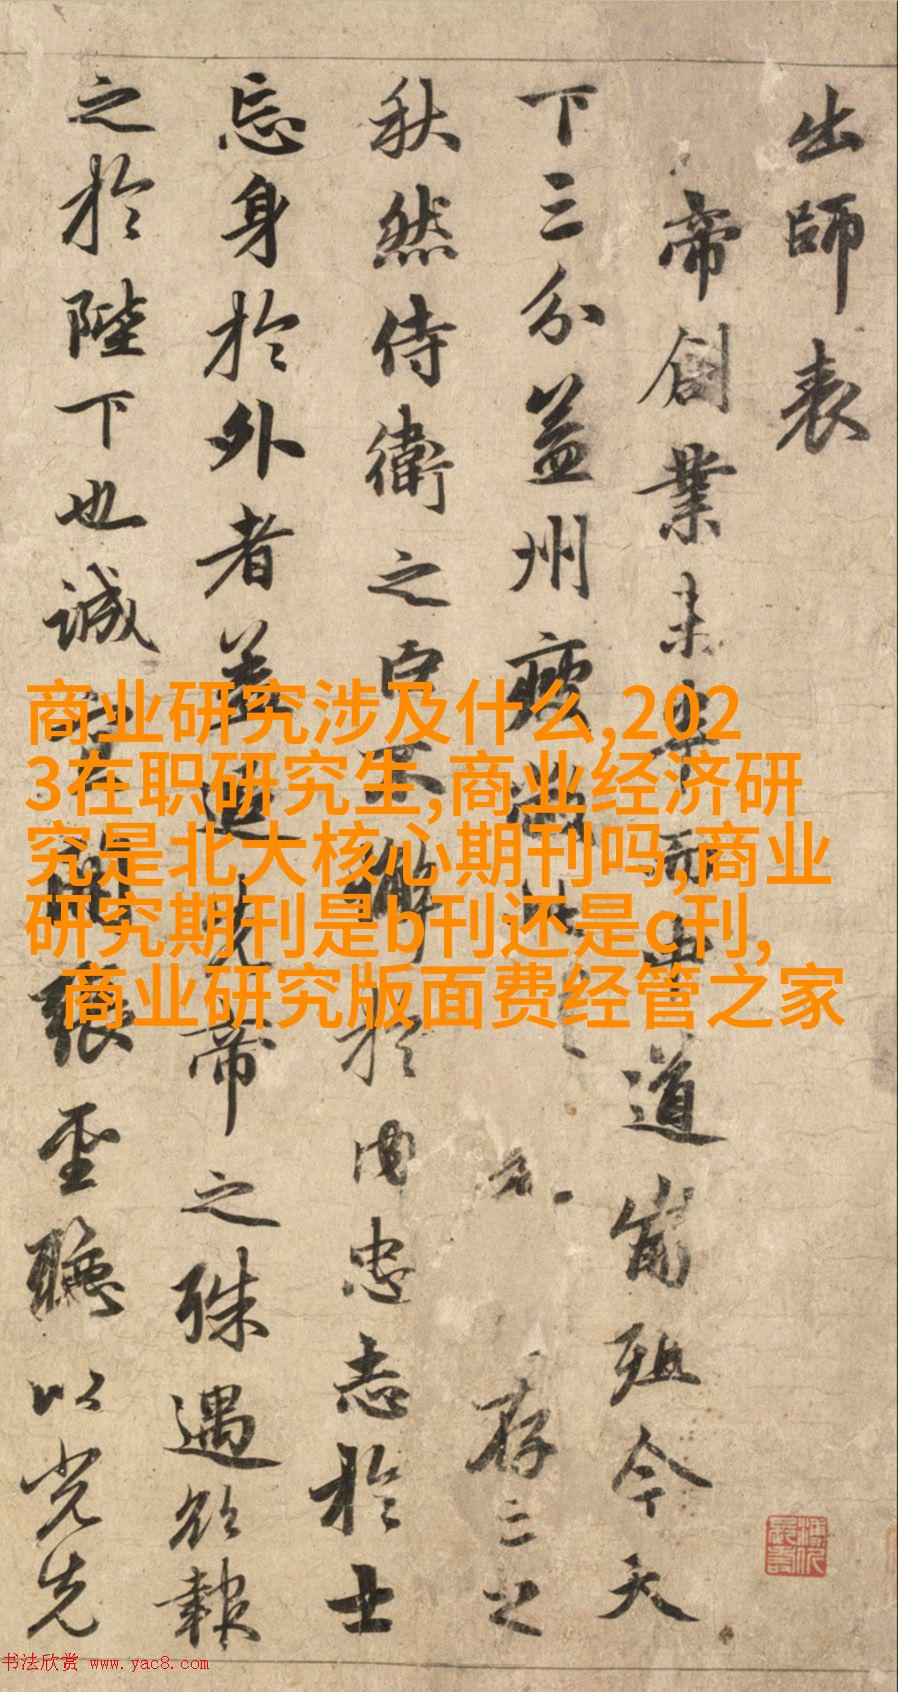 出師表
帝創業未半而中道崩殂今天
下三分益州疲弊 存亡之
秋然侍衛之臣不懈於内忠志於士
忘身於外者蓋追先帝之殊遇欲報
之於陛下也誠 開張聖聽以光先
商业研究涉及什么,202
3在职研究生,商业经济研
究是北大核心期刊吗,商业
研究期刊是b刊还是c刊,
商业研究版面费经管之家
书法欣赏 www.yac8.com